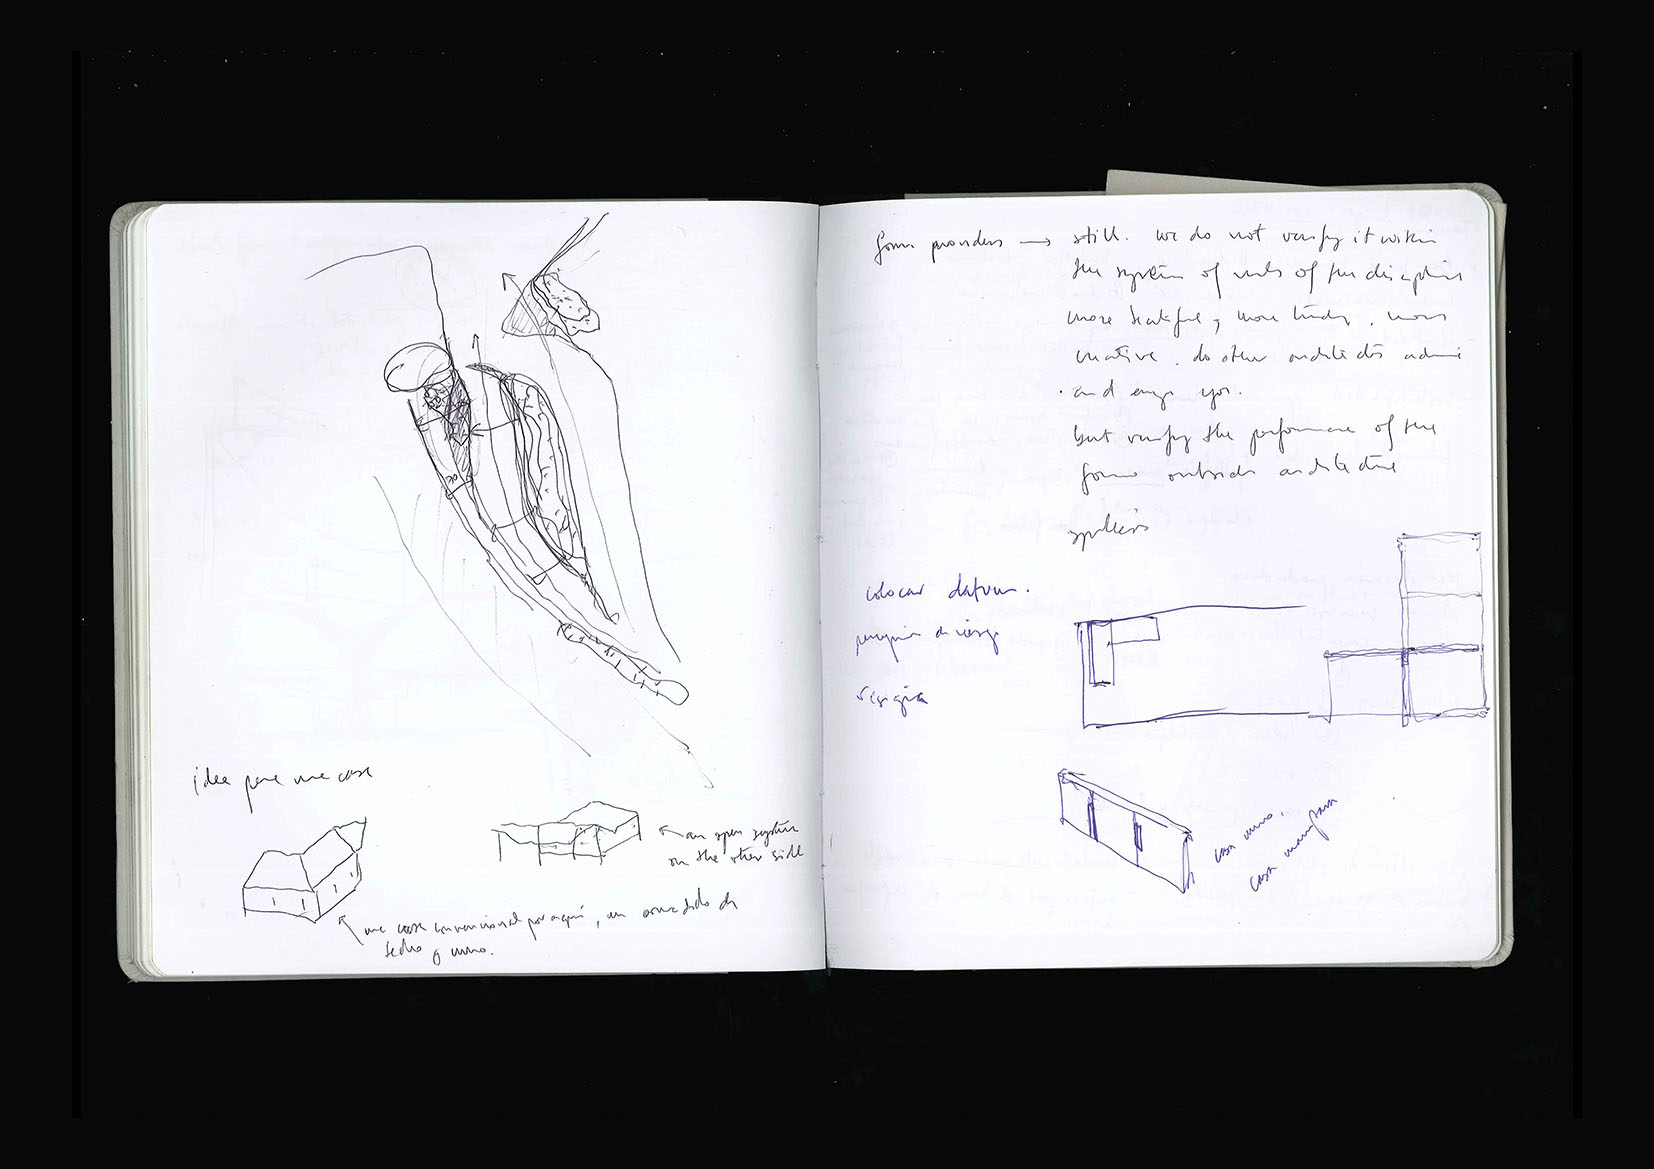 idea para una casa
an open system
on the other side
una casa convencional por aquí, un de
techo y muro.
form providers → still. we do not verify it within
the system of rules of the discipline
more , more , more
creative. do other architects admire
and envy you.
but verify the performance of the
form outside architecture
colocar datum.
casa muro.
casa mampara